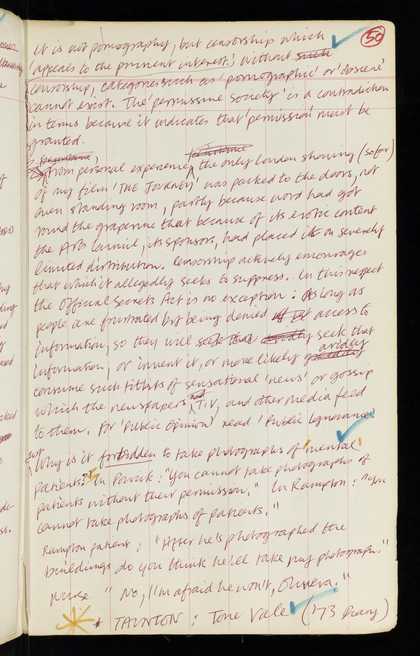 50
It is not pornography, but censorship which
'appeals to the prurient interest'. Without such
censorship, categories such as 'pornographic' or 'obscene'
cannot exist. The 'permissive society' is a contradiction
in terms because it indicates that 'permission' must be
granted.
From personal experience, the only London showing (so far)
of my film 'THE JOURNEY' was packed to the doors, not
even standing room, partly because word had got
round the grapevine that because of its erotic content
the Arts Council, its sponsors, had placed it on severely
limited distribution. Censorship actively encourages
that which it allegedly seeks to suppress. In this respect
the Official Secrets Act is no exception: As long as
people are frustrated by being denied access to
information, so they will seek that
information, or invent it, or more likely avidly
consume such titbits of sensational 'news' or gossip
which the newspapers and T.V., and other media feed
to them. For 'Public Opinion' read 'Public Ignorance'
Why is it forbidden to take photographs of 'mental'
patients? In : "You cannot take photographs of
patients without their permission." In Rampton: "You
cannot take photographs of patients."
Rampton patient: "After he's photographed the
buildings do you think he'll take my photograph?"
Nurse "No, I'm afraid he won't, ."
* TAUNTON: Tone Vale ('73 Diary)